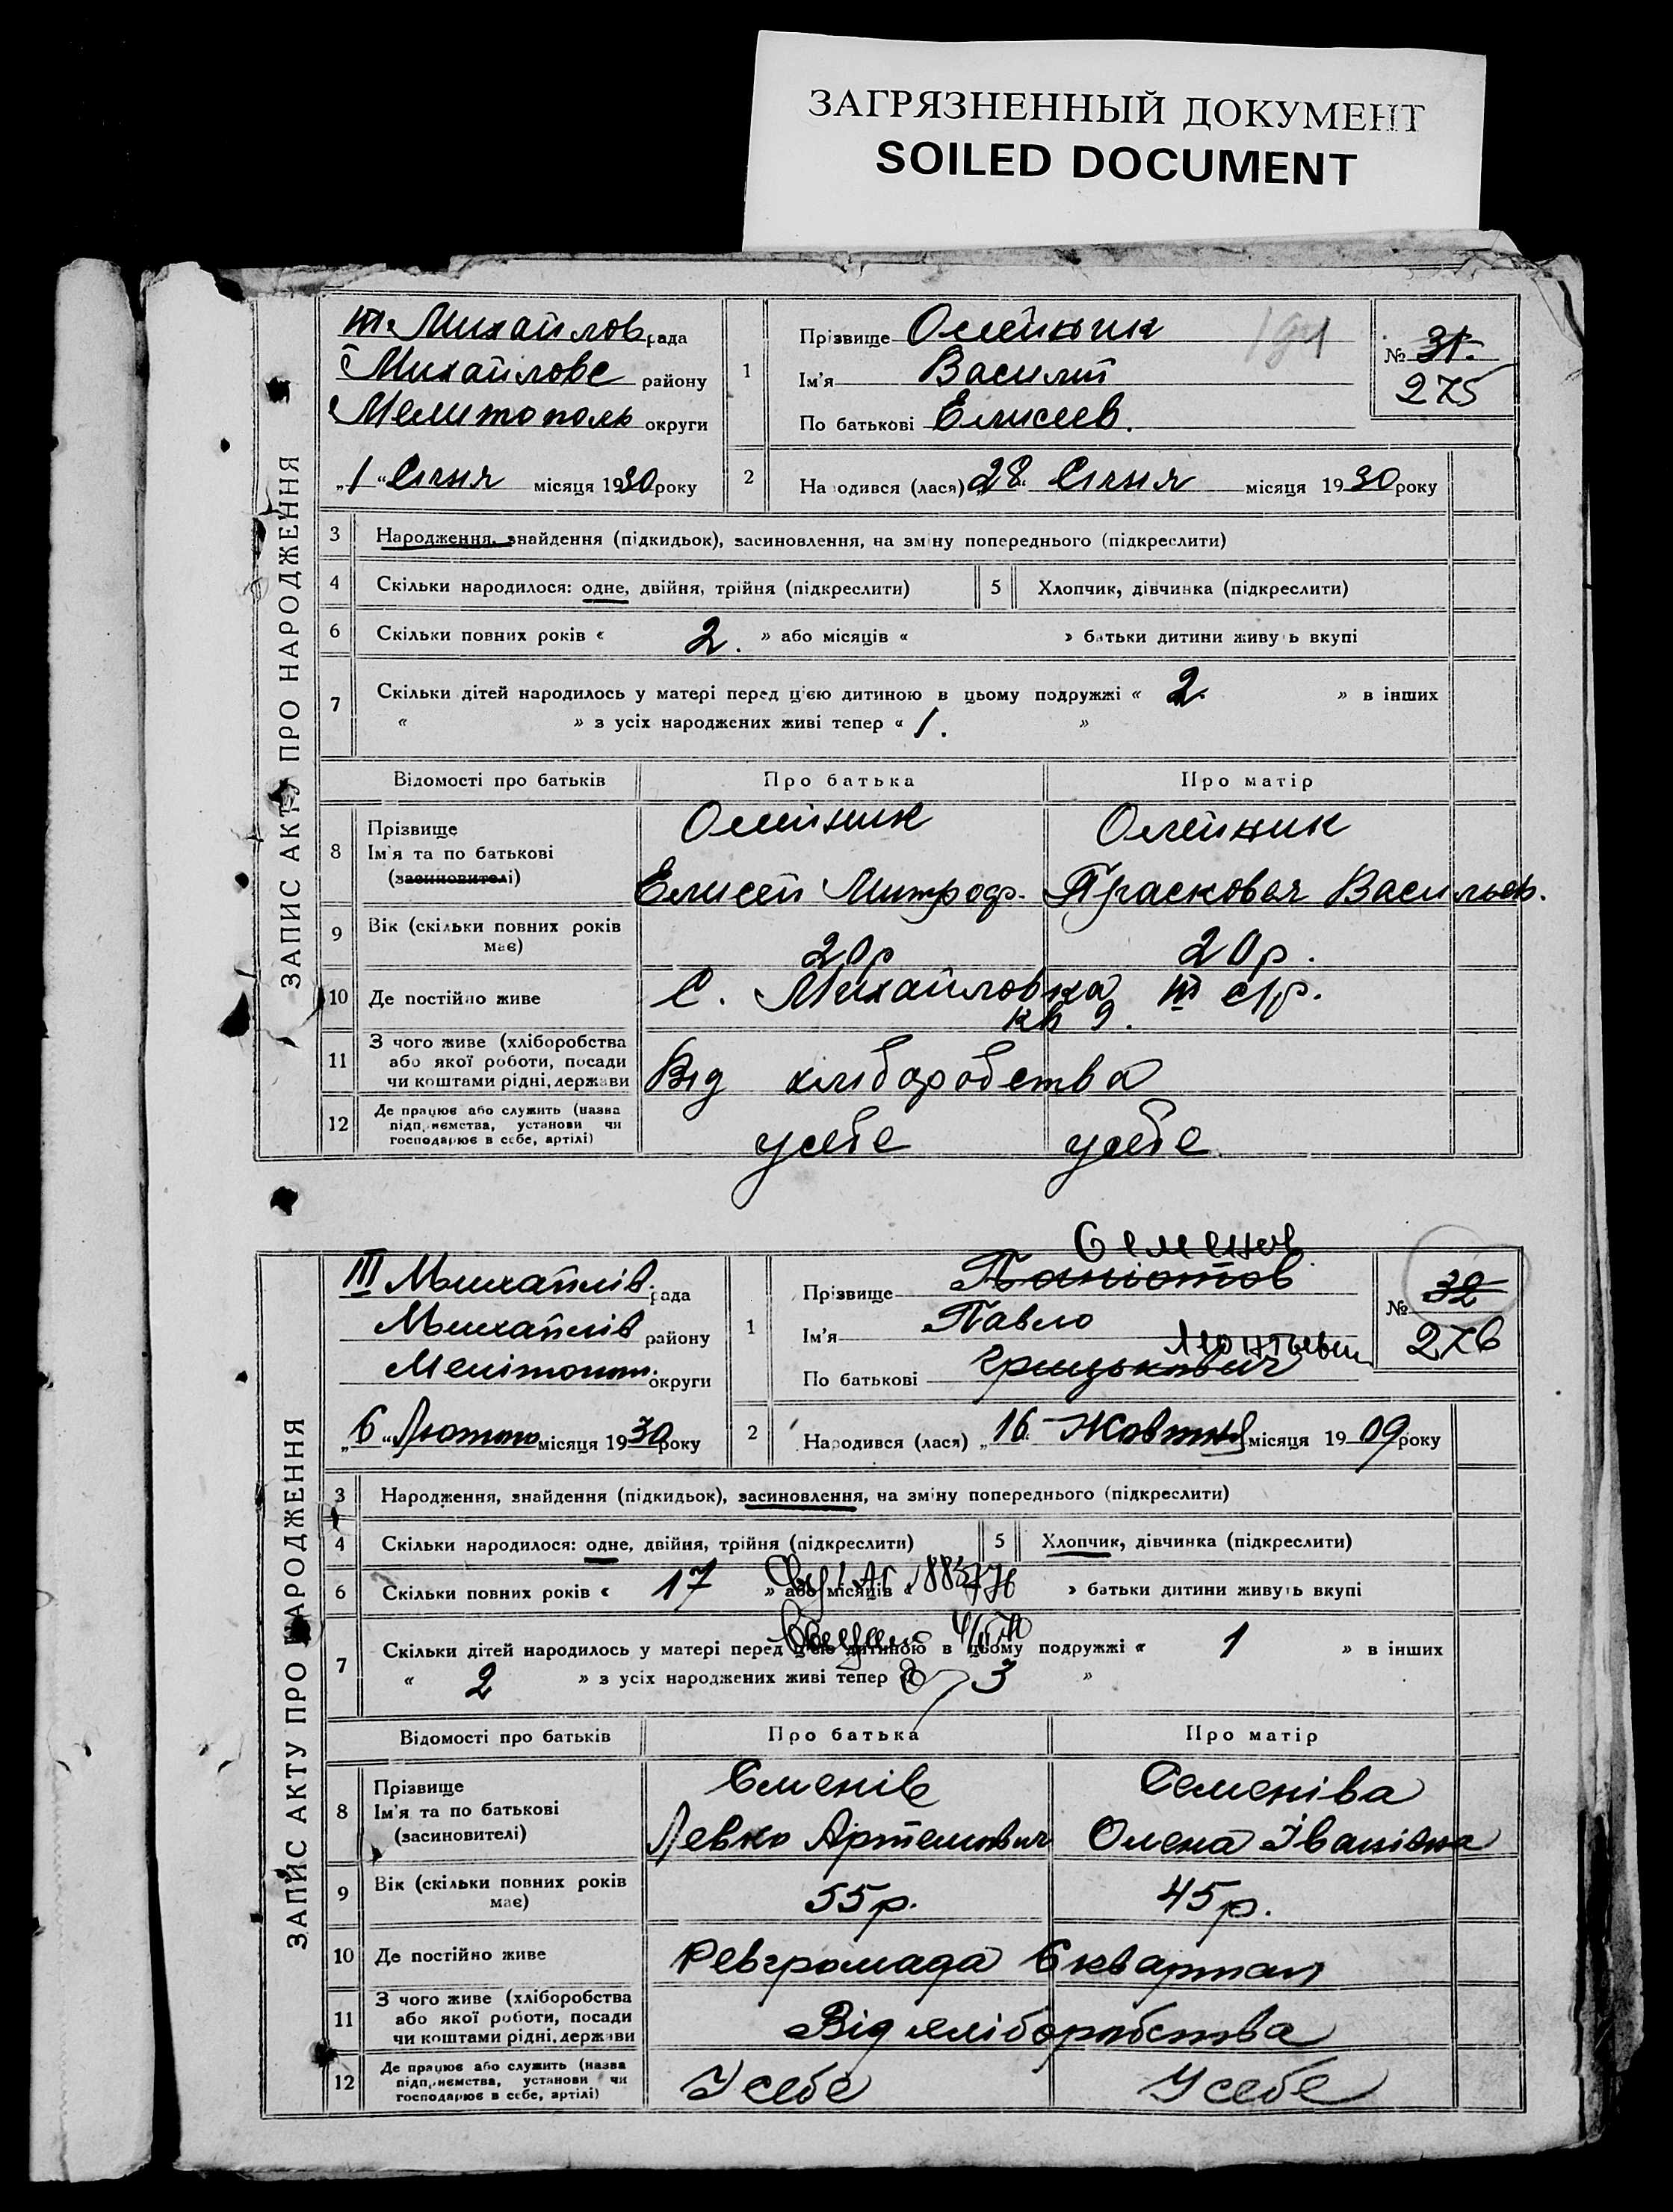 ЗАГРЯЗНЕННЫЙ ДОКУМЕНТ
SOILED DOCUMENT
ЗАПИС АКТУ ПРО НАРОДЖЕННЯ
III Михайлов рада
Михайлове району
Мелитополь округи
„1“ Січня місяця 1930 року
1
Прізвище Олейник
Ім'я Василий
По батькові Елисеев.
№ 31.
275
2
Народився (лася) „28“ Січня місяця 1930 року
3 Народження, знайдення (підкидьок), засиновлення, на зміну попереднього (підкреслити)
4 Скільки народилося: одне, двійня, трійня (підкреслити)
5 Хлопчик, дівчинка (підкреслити)
6 Скільки повних років « 2. » або місяців « » батьки дитини живуть вкупі
7 Скільки дітей народилось у матері перед цією дитиною в цьому подружжі « 2. » в інших
« » з усіх народжених живі тепер « 1. »
Відомості про батьків Про батька Про матір
8 Прізвище Олейник Олейник
Ім'я та по батькові
(засиновителі) Елисей Митроф. Прасковья Васильев.
9 Вік (скільки повних років має) 20р 20р.
10 Де постійно живе С. Михайловка III с/р.
кв 9.
11 З чого живе (хліборобства
або якої роботи, посади
чи коштами рідні, держави Від хліборобства
12 Де працює або служить (назва
підприємства, установи чи
господарює в себе, артілі) у себе у себе
ЗАПИС АКТУ ПРО НАРОДЖЕННЯ
III Михайлів. рада
Михайлів району
Мелітопол. округи
„6“ Лютого місяця 1930 року
1
Семенов
Прізвище Паніотов
Ім'я Павло
Леонтьевич
По батькові Грицькович
№ 32
276
2
Народився (лася) „16“ Жовтня місяця 1909 року
3 Народження, знайдення (підкидьок), засиновлення, на зміну попереднього (підкреслити)
4 Скільки народилося: одне, двійня, трійня (підкреслити)
5 Хлопчик, дівчинка (підкреслити)
6 Скільки повних років « 17 » або місяців « » батьки дитини живуть вкупі
7 Скільки дітей народилось у матері перед цією дитиною в цьому подружжі « 1 » в інших
« 2 » з усіх народжених живі тепер « 3 »
Відомості про батьків Про батька Про матір
8 Прізвище Семенів Семеніва
Ім'я та по батькові
(засиновителі) Левко Артемович Олена Іванівна
9 Вік (скільки повних років має) 55р. 45р.
10 Де постійно живе Ревгромада 6 квартал
11 З чого живе (хліборобства
або якої роботи, посади
чи коштами рідні, держави Від хліборобства
12 Де працює або служить (назва
підприємства, установи чи
господарює в себе, артілі) У себе У себе